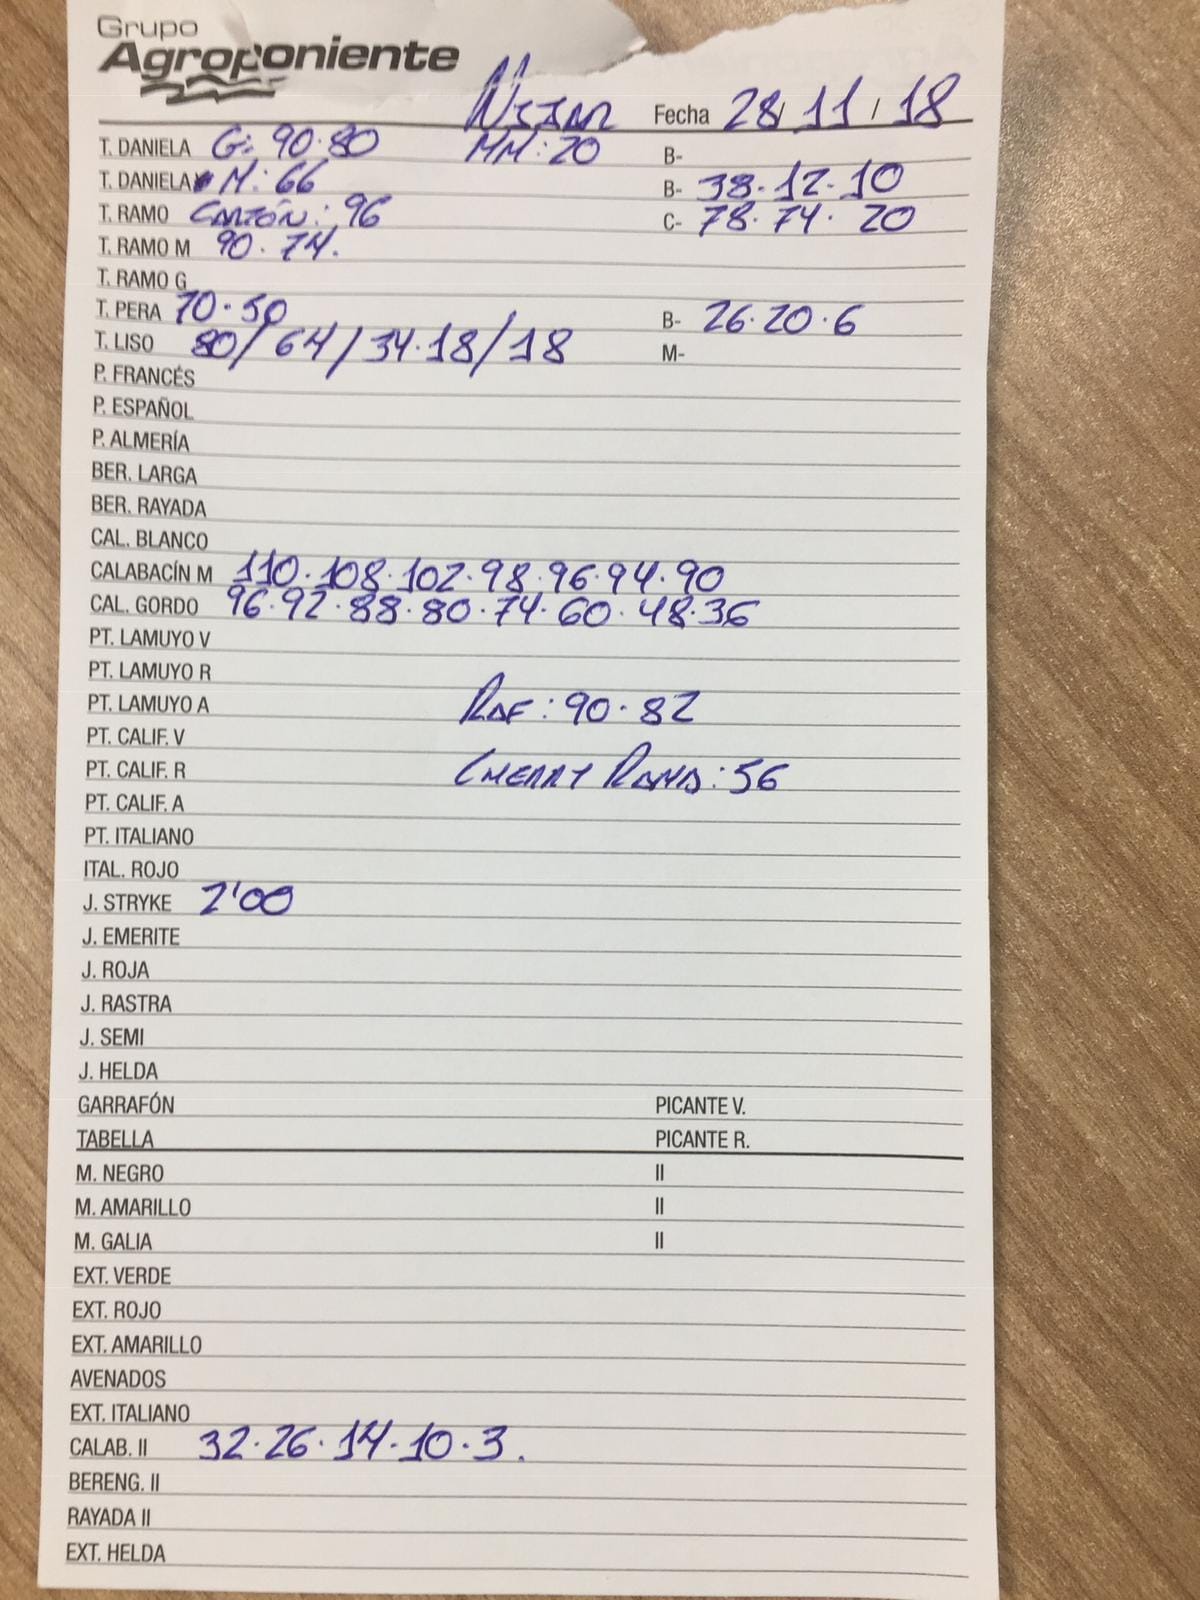 Grupo
Agroponiente
NIJAR Fecha 28/ 11 / 18
T. DANIELA G: 90·80 MM: 20 B-
T. DANIELA M: 66 B- 38·12·10
T. RAMO CARTÓN: 96 C- 78·74· 20
T. RAMO M 90·74.
T. RAMO G
T. PERA 70·50 B- 26·20·6
T. LISO 80/64/34·18/18 M-
P. FRANCÉS
P. ESPAÑOL
P. ALMERÍA
BER. LARGA
BER. RAYADA
CAL. BLANCO
CALABACÍN M 110·108·102·98·96·94·90
CAL. GORDO 96·92·88·80·74·60·48·36
PT. LAMUYO V
PT. LAMUYO R
PT. LAMUYO A RAF: 90·82
PT. CALIF. V
PT. CALIF. R CHERRY RAMA: 56
PT. CALIF. A
PT. ITALIANO
ITAL. ROJO
J. STRYKE 2'00
J. EMERITE
J. ROJA
J. RASTRA
J. SEMI
J. HELDA
GARRAFÓN PICANTE V.
TABELLA PICANTE R.
M. NEGRO II
M. AMARILLO II
M. GALIA II
EXT. VERDE
EXT. ROJO
EXT. AMARILLO
AVENADOS
EXT. ITALIANO
CALAB. II 32·26·14·10·3.
BERENG. II
RAYADA II
EXT. HELDA